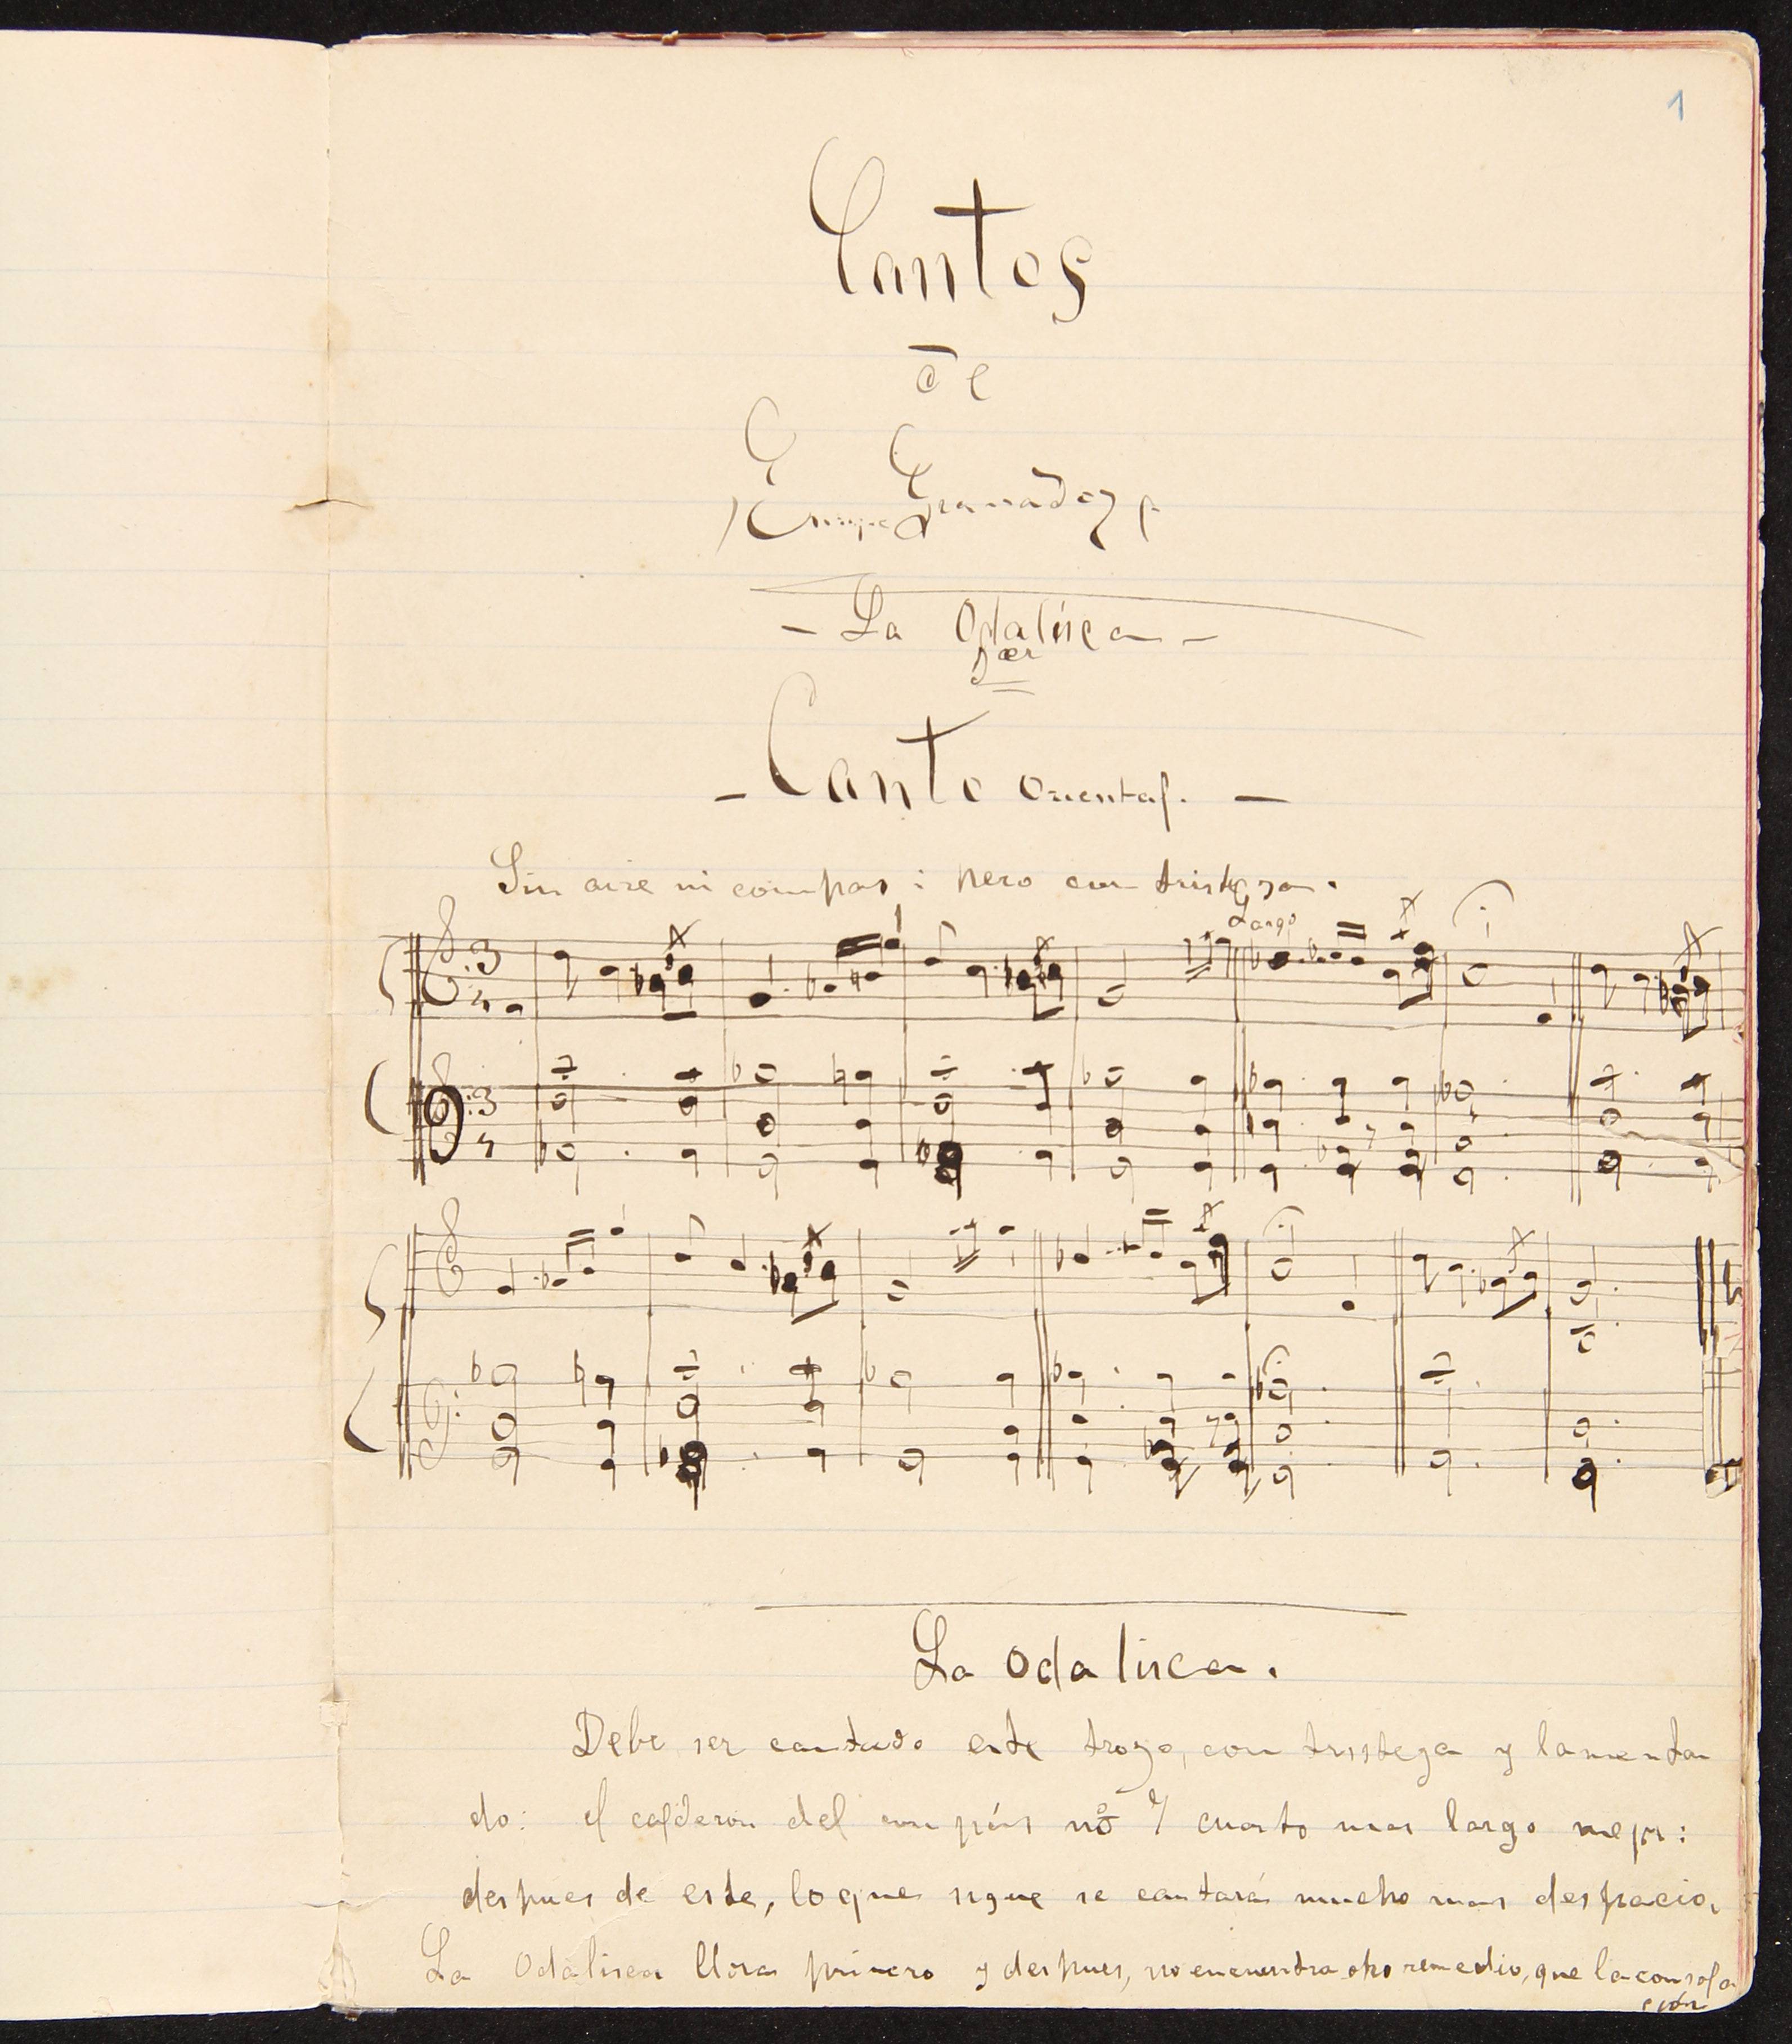 1
Cantos
de
Enrique Granados
- La Odalisca -
- Canto Oriental. -
Sin aire ni compas: pero con tristeza.
Largo
3
4
3
4
La Odalisca.
Debe ser cantado este trozo, con tristeza y lamentan
do: el calderon del compás nº cuarto mas largo mejor:
despues de este, lo que sigue se cantará mucho mas despacio.
La Odalisca llora primero y despues, no encuentra otro remedio, que la consola
ción